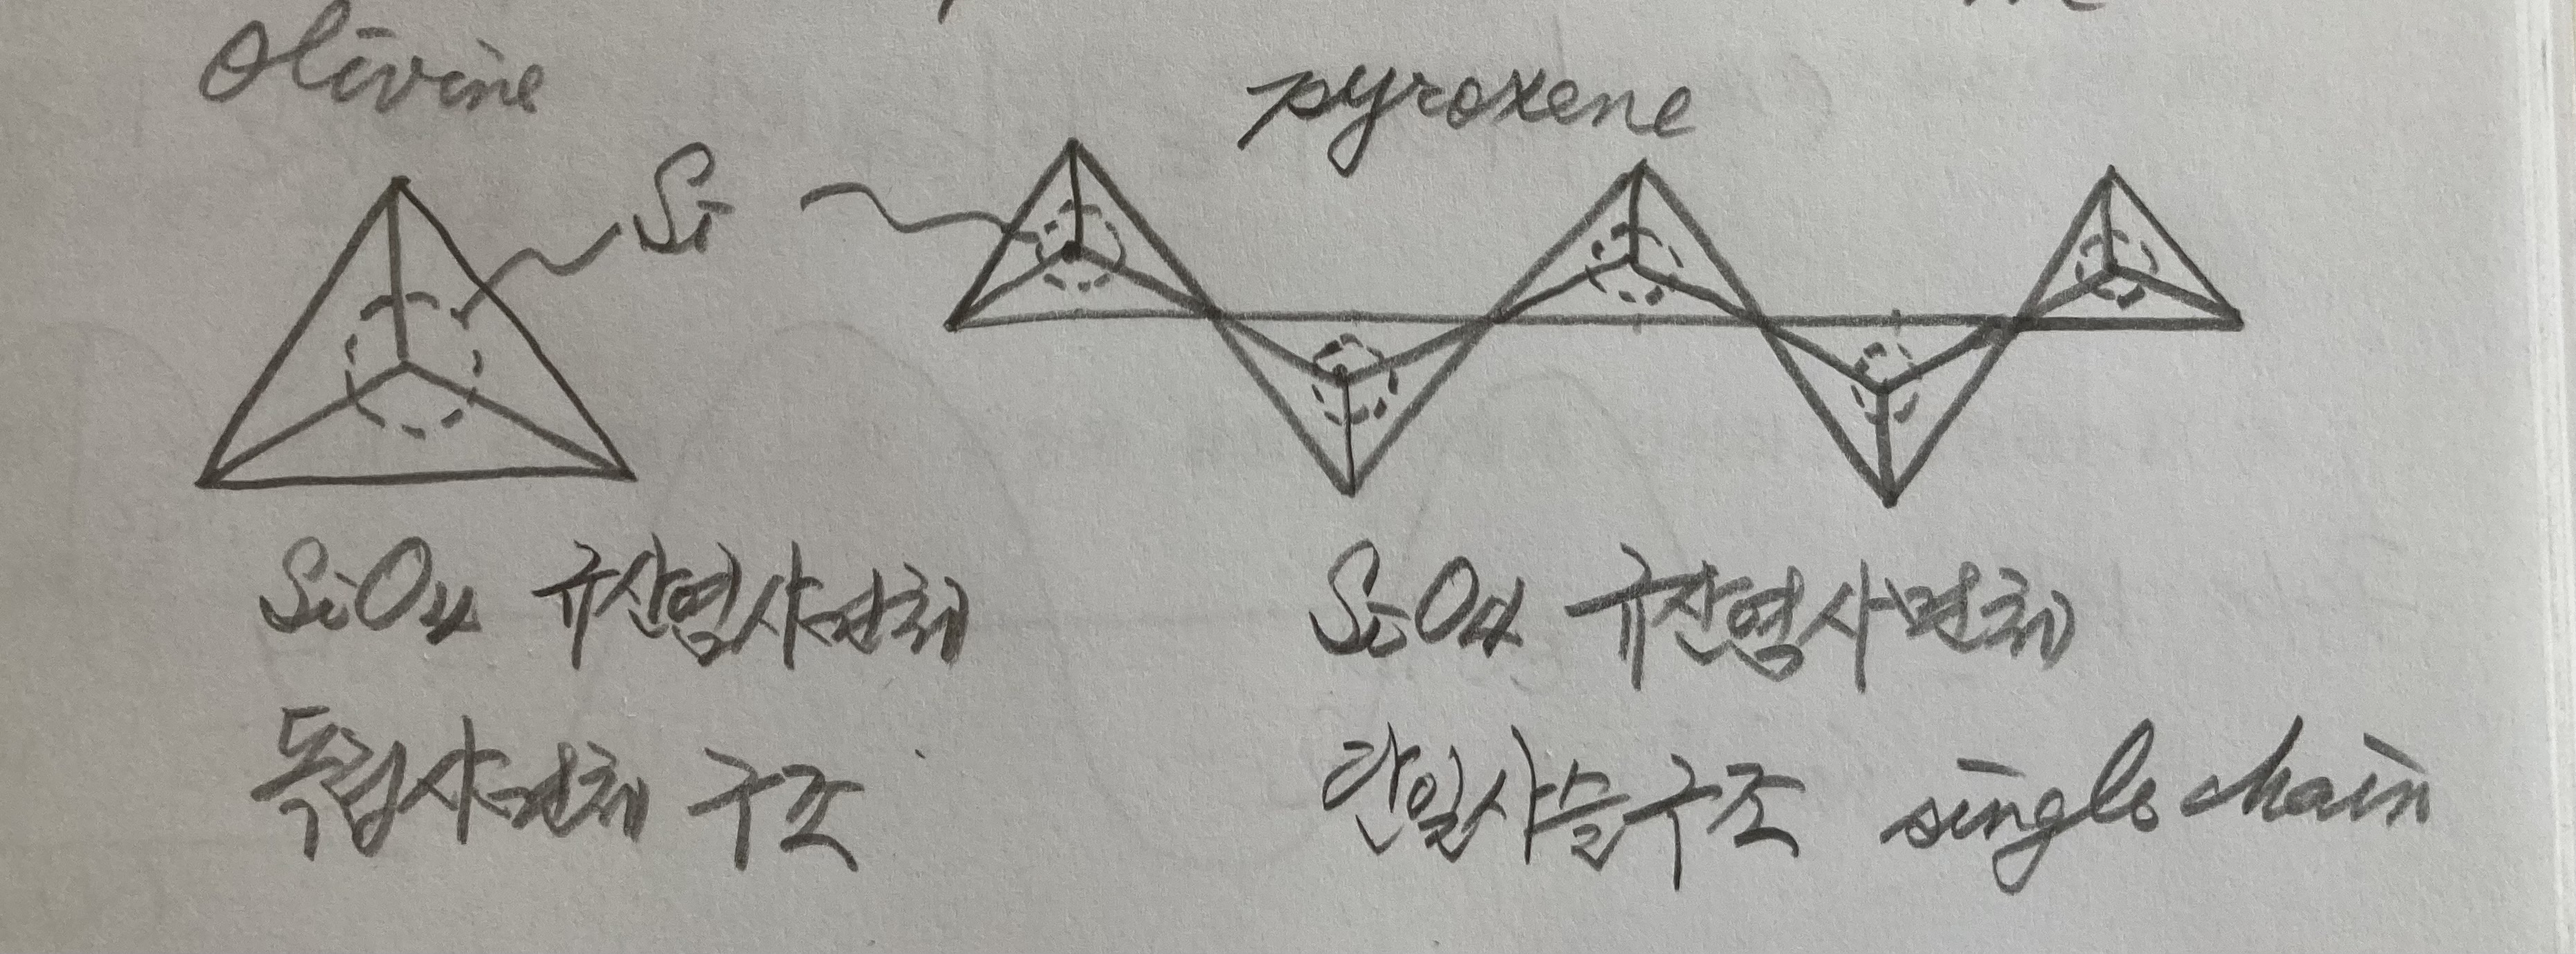 olivine
pyroxene
Si
SiO4 규산염사면체
SiO4 규산염사면체
독립사면체 구조
단일사슬구조 single chain